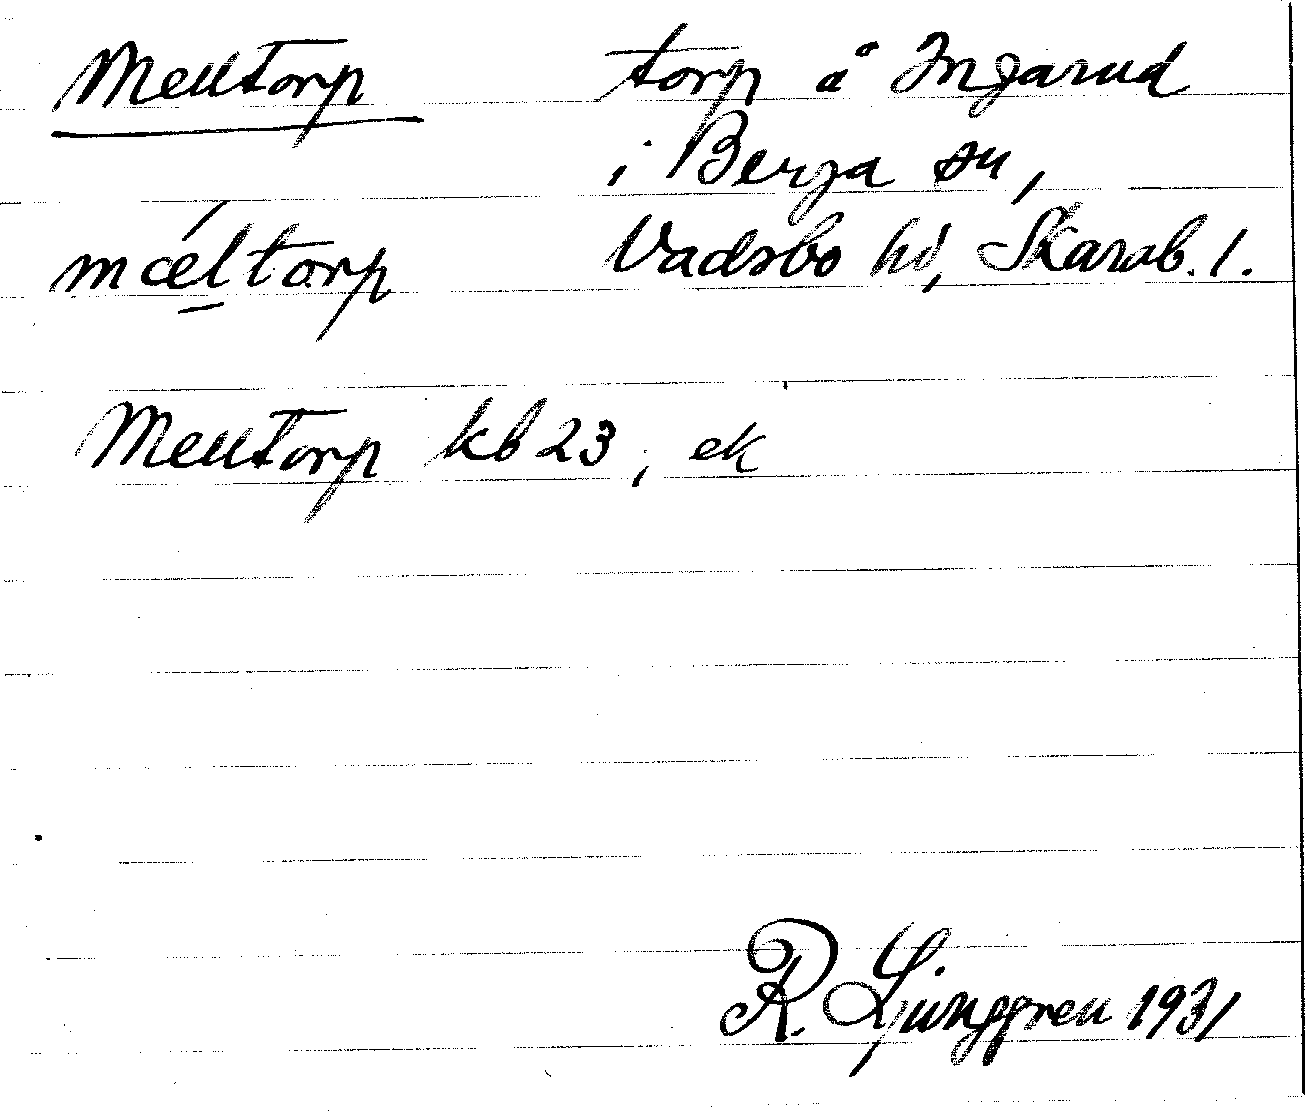 Melltorp torp å Ingarud
i Berga sn,
mæltorp Vadsbo hd, Skarab. l.
Melltorp kb 23, ek
R. Ljunggren 1931